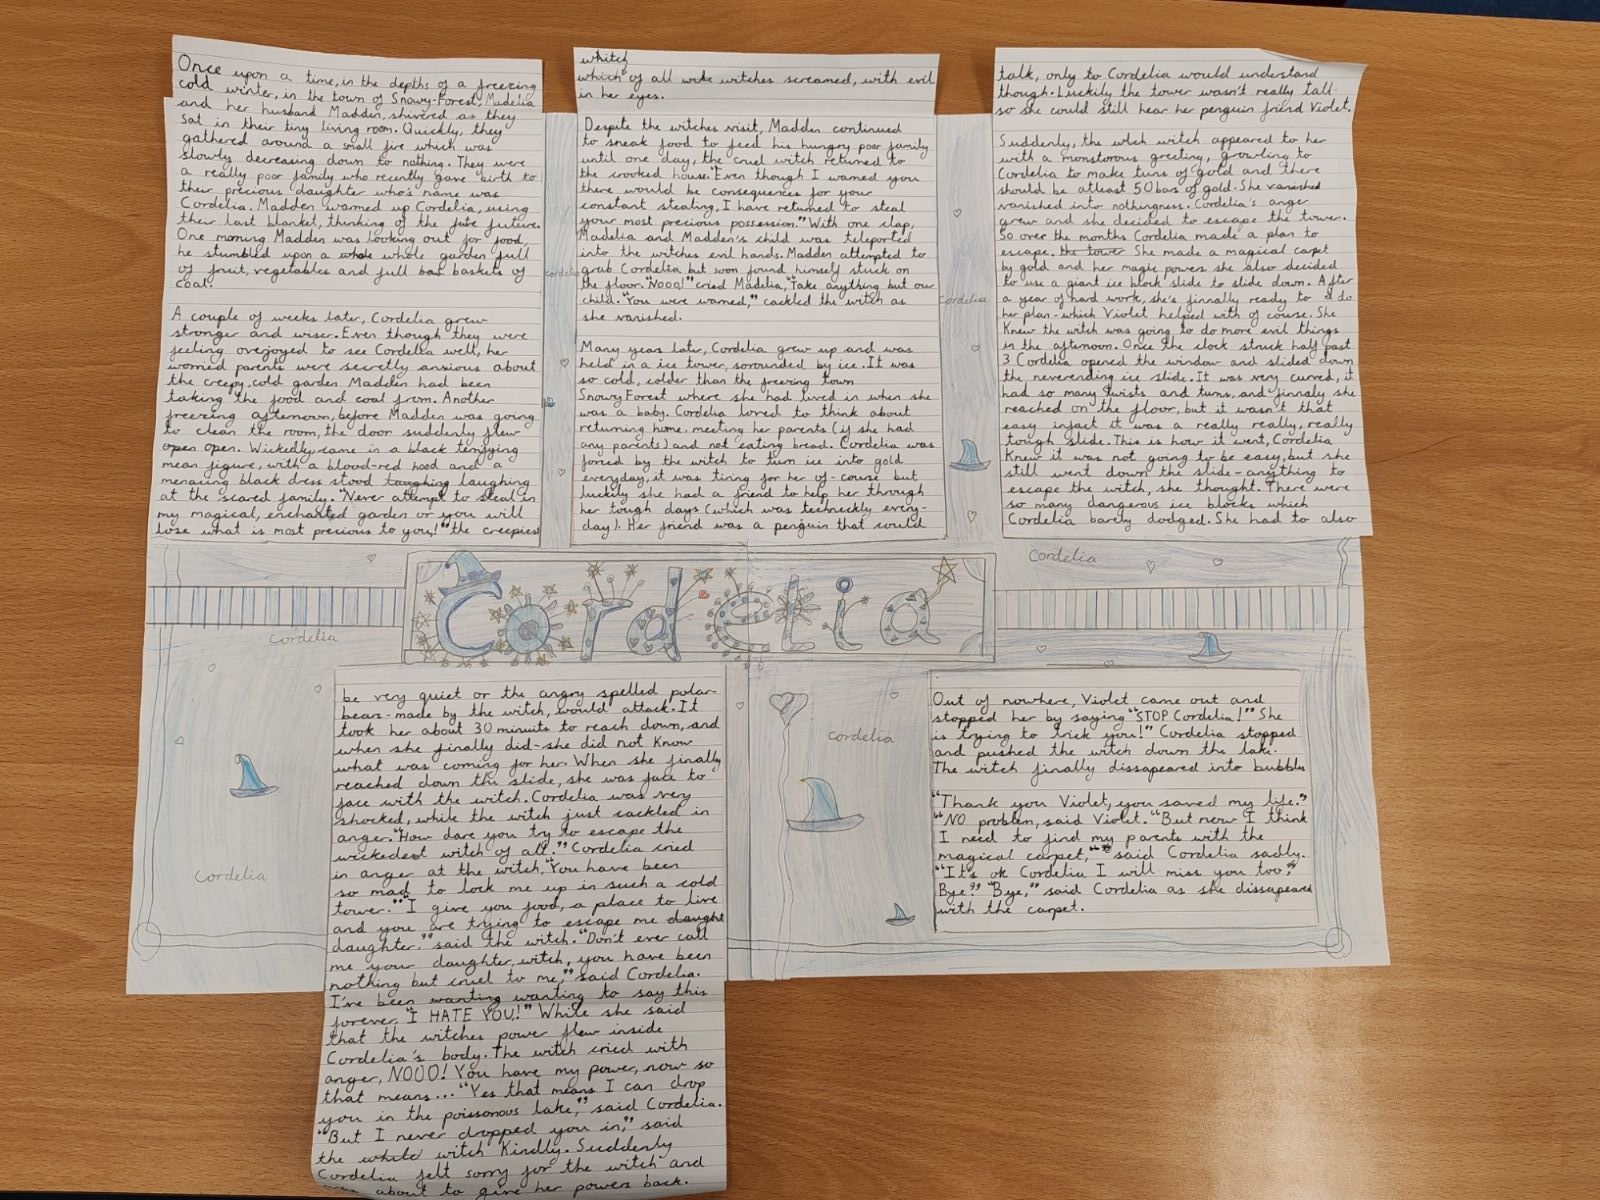 Once upon a time, in the depths of a freezing
cold winter, in the town of Snowy-Forest, Madelia
and her husband Madden, shivered as they
sat in their tiny living room. Quickly, they
gathered around a small fire which was
slowly decreasing down to nothing. They were
a really poor family who recently gave birth to
their precious daughter who's name was
Cordelia. Madden warmed up Cordelia, using
their last blanket, thinking of the future.
One morning Madden was looking out for food,
he stumbled upon a whole whole garden full
of fruit, vegetables and full bas baskets of
coal.
A couple of weeks later, Cordelia grew
stronger and wiser. Even though they were
feeling overjoyed to see Cordelia well, her
worried parents were secretly anxious about
the creepy, cold garden Madden had been
taking the food and coal from. Another
freezing afternoon, before Madden was going
to clean the room, the door suddenly flew
open open. Wickedly, came in a black terrifying
mean figure, with a blood-red hood and a
menacing black dress stood laughing laughing
at the scared family. "Never attempt to steal in
my magical, enchanted garden or you will
lose what is most precious to you!" the creepiest
whitch
which of all witches screamed, with evil
in her eyes.
Despite the witches visit, Madden continued
to sneak food to feed his hungry poor family
until one day, the cruel witch returned to
the crooked house. "Even though I warned you
there would be consequences for your
constant stealing, I have returned to steal
your most precious possession." With one clap,
Madelia and Madden's child was teleported
into the witches evil hands. Madden attempted to
grab Cordelia but soon found himself stuck on
the floor. "Nooo!" cried Madelia, "Take anything but our
child. "You were warned," cackled the witch as
she vanished.
Many years later, Cordelia grew up and was
held in a ice tower, sorounded by ice. It was
so cold, colder than the freezing town
Snowy Forest where she had lived in when she
was a baby. Cordelia loved to think about
returning home, meeting her parents (if she had
any parents) and not eating bread. Cordelia was
forced by the witch to turn ice into gold
everyday, it was tiring for her of-couse but
luckily she had a friend to help her through
her tough days (which was techneckly every-
day). Her friend was a penguin that could
talk, only to Cordelia would understand
though. Luckily the tower wasn't really tall
so she could still hear her penguin friend Violet.
Suddenly, the witch appeared to her
with a monstorous greeting, growling to
Cordelia to make tuns of gold and there
should be atleast 50 bars of gold. She vanished
vanished into nothingness. Cordelia's anger
grew and she decided to escape the tower.
So over the months Cordelia made a plan to
escape. the tower She made a magical carpet
by gold and her magic powers she also decided
to use a giant ice block slide to slide down. After
a year of hard work, she's finnally ready to do
her plan-which Violet helped with of course. She
Knew the witch was going to do more evil things
in the afternoon. Once the clock struck half past
3 Cordelia opened the window and slided down
the neverending ice slide. It was very curved, it
had so many twists and tuns, and finnaly she
reached on the floor, but it wasn't that
easy infact it was a really really, really
tough slide. This is how it went, Cordelia
Knew it was not going to be easy, but she
still went down the slide-anything to
escape the witch, she thought. There were
so many dangerous ice blocks which
Cordelia barely dodged. She had to also
cordelia
Cordelia
Cordelia
Cordelia
Cordelia
cordelia
Cordelia
be very quiet or the angry spelled polar-
bears-made by the witch, would attack. It
took her about 30 minuits to reach down, and
when she finally did-she did not Know
what was coming for her. When she finally
reached down the slide, she was face to
face with the witch. Cordelia was very
shocked, while the witch just cackled in
anger. "How dare you try to escape the
wickedest witch of all." Cordelia cried
in anger at the witch, "You have been
so mad to lock me up in such a cold
tower." "I give you food, a place to live
and you are trying to escape me daught
daughter," said the witch. "Don't ever call
me your daughter, witch, you have been
nothing but cruel to me," said Cordelia.
I've been wanting wanting to say this
forever. "I HATE YOU!" While she said
that the witches power flew inside
Cordelia's body. The witch cried with
anger, NOOO! You have my power, now so
that means... "Yes that means I can drop
you in the poissonous lake," said Cordelia.
"But I never dropped you in," said
the witch Kindly. Suddenly
Cordelia felt sorry for the witch and
was about to give her powers back.
Cordelia
Out of nowhere, Violet came out and
stopped her by saying "STOP Cordelia!" She
is trying to trick you!" Cordelia stopped
and pushed the witch down the lake.
The witch finally dissapeared into bubbles
"Thank you Violet, you saved my life."
"NO problem, said Violet. "But now I think
I need to find my parents with the
magical carpet," said Cordelia sadly.
"It's ok Cordelia I will miss you too."
Bye!" "Bye," said Cordelia as she dissapeared
with the carpet.